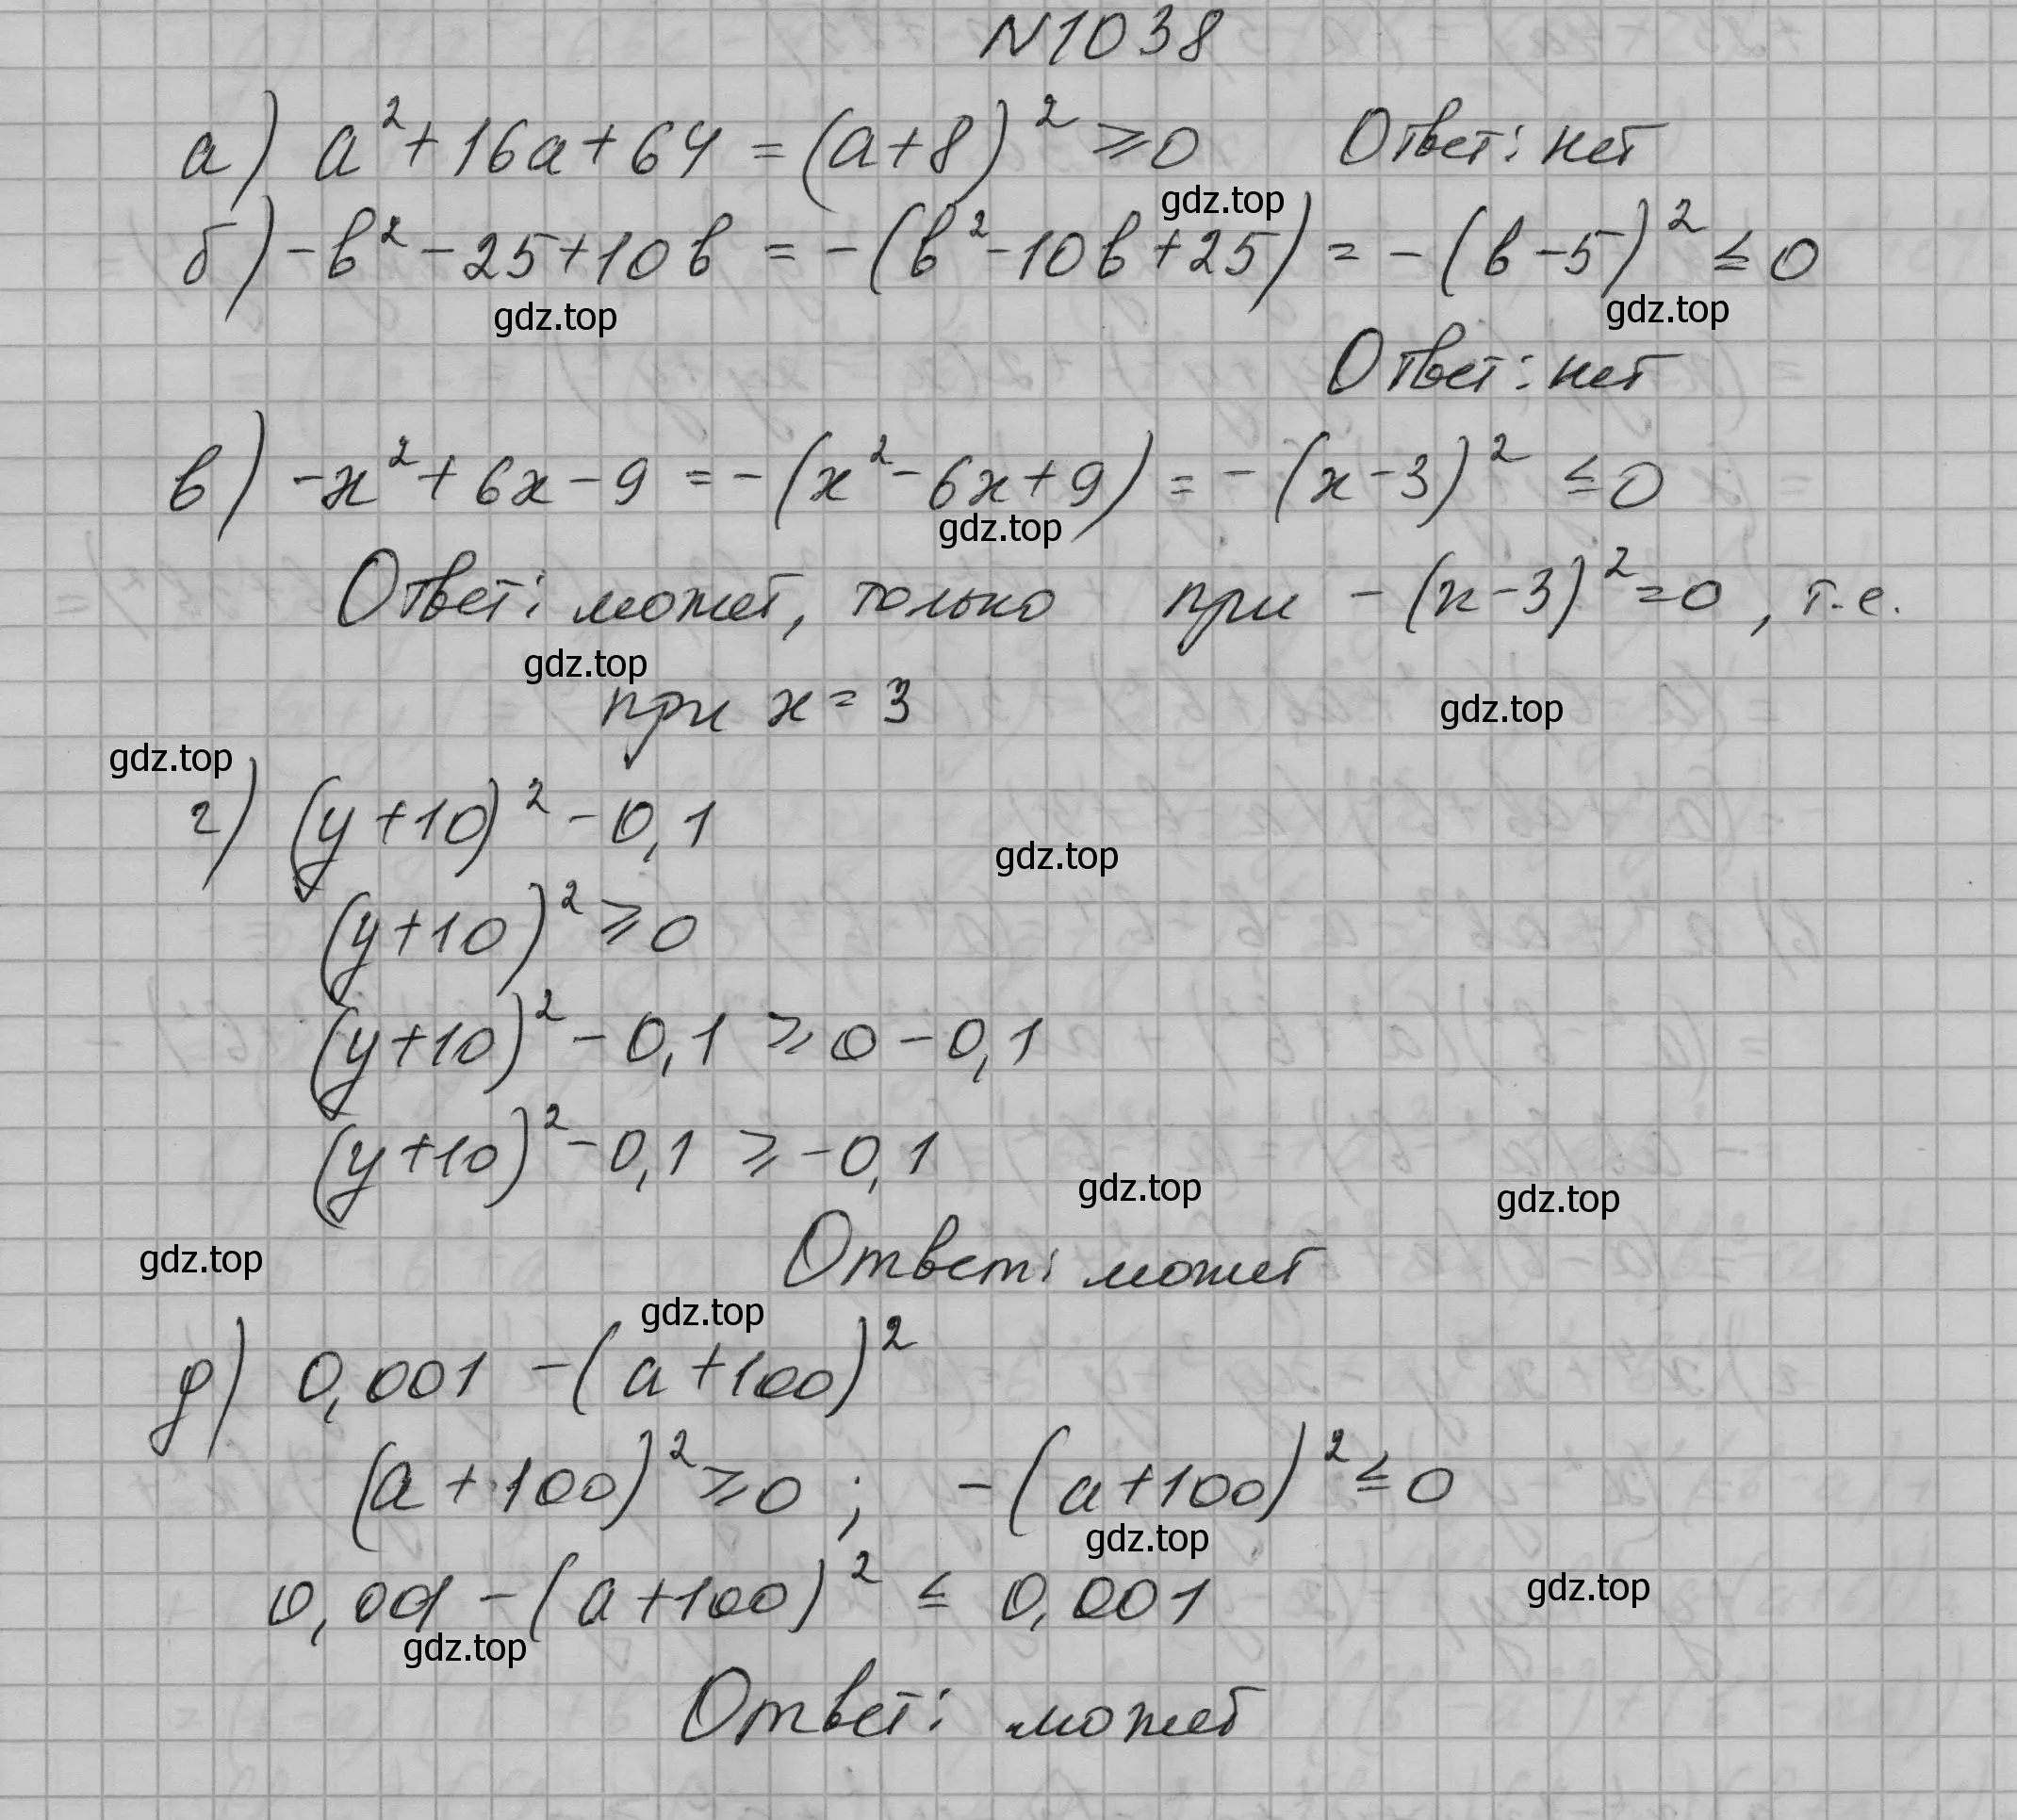 N1038
а) a² + 16a + 64 = (a+8)² ⩾ 0 Ответ: нет
gdz.top
б) -b² - 25 + 10b = -(b² - 10b + 25) = -(b-5)² ≤ 0
gdz.top gdz.top
Ответ: нет
в) -x² + 6x - 9 = -(x² - 6x + 9) = -(x-3)² ≤ 0
gdz.top
Ответ: может, только при -(x-3)² = 0, т.е.
gdz.top
при x = 3 gdz.top
gdz.top
г) (y+10)² - 0,1
gdz.top
(y+10)² ⩾ 0
(y+10)² - 0,1 ⩾ 0 - 0,1
(y+10)² - 0,1 ⩾ -0,1
gdz.top gdz.top
gdz.top Ответ: может
gdz.top
д) 0,001 - (a+100)²
(a+100)² ⩾ 0; -(a+100)² ≤ 0
gdz.top
0,001 - (a+100)² ≤ 0,001 gdz.top
gdz.top
Ответ: может